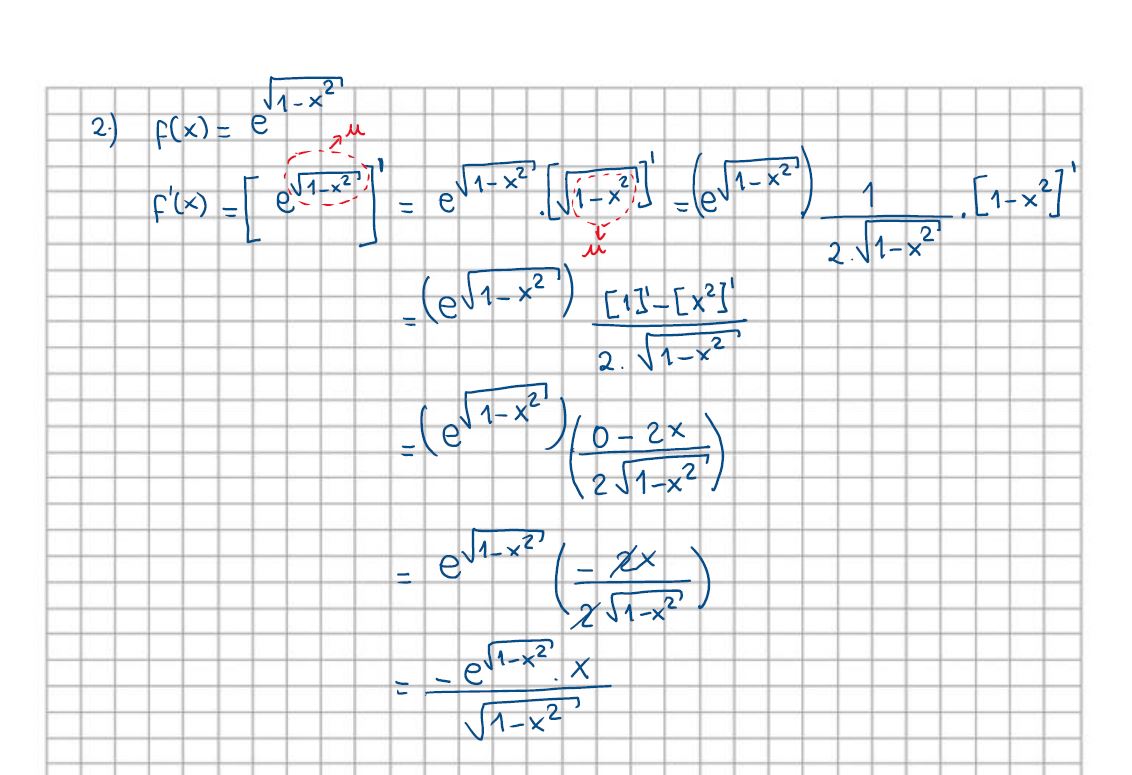 2.) f(x) = e^√(1-x²)
u
f'(x) = [e^√(1-x²)]' = e^√(1-x²) . [√(1-x²)]' = (e^√(1-x²)) 1/(2.√(1-x²)) . [1-x²]'
u
= (e^√(1-x²)) ([1]'-[x²]')/(2.√(1-x²))
= (e^√(1-x²)) ((0-2x)/(2√(1-x²)))
= e^√(1-x²) (-2x/(2√(1-x²)))
= (-e^√(1-x²) . x)/√(1-x²)